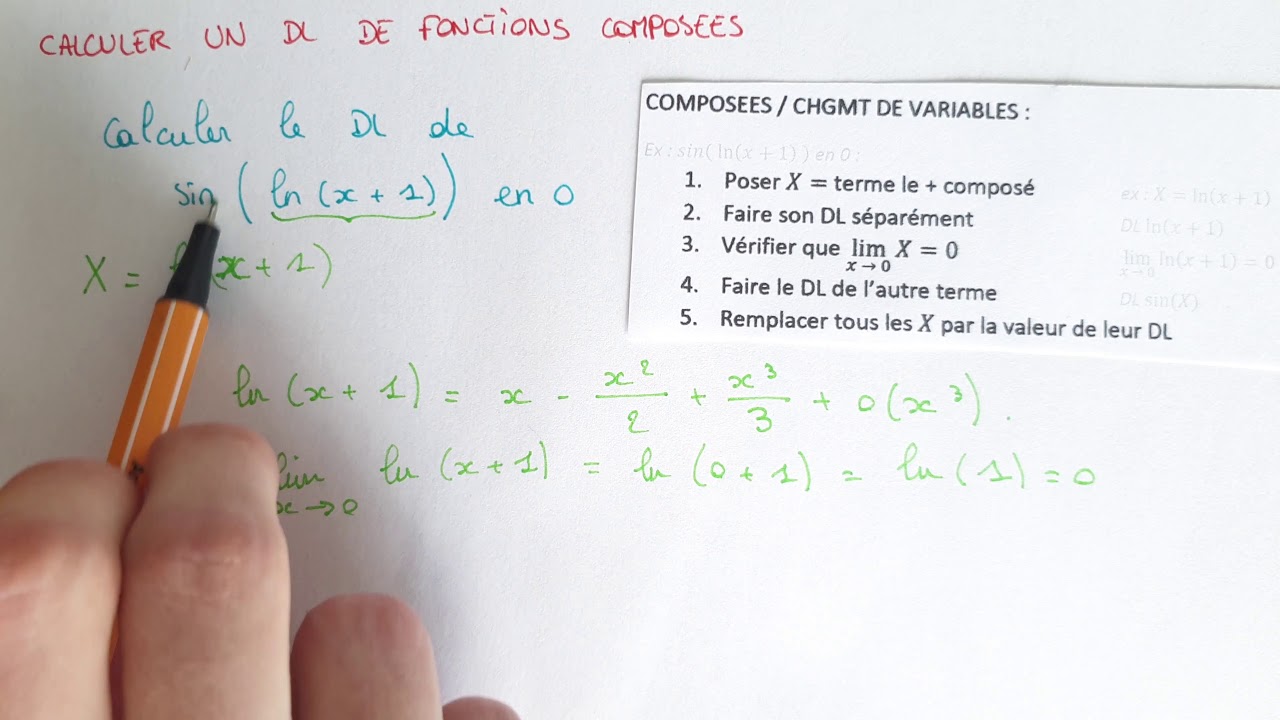 CALCULER UN DL DE FONCTIONS COMPOSEES
Calculer le DL de
sin (ln (x + 1)) en 0
X = (x + 1)
COMPOSEES / CHGMT DE VARIABLES :
Ex : sin( ln(x + 1) ) en 0 :
1. Poser X = terme le + composé
ex : X = ln(x + 1)
2. Faire son DL séparément
DL ln(x + 1)
3. Vérifier que lim X = 0
x → 0
lim ln(x + 1) = 0
x→0
4. Faire le DL de l’autre terme
DL sin(X)
5. Remplacer tous les X par la valeur de leur DL
ln (x + 1) = x - x²/2 + x³/3 + o(x³).
lim ln (x + 1) = ln (0 + 1) = ln (1) = 0
x → 0